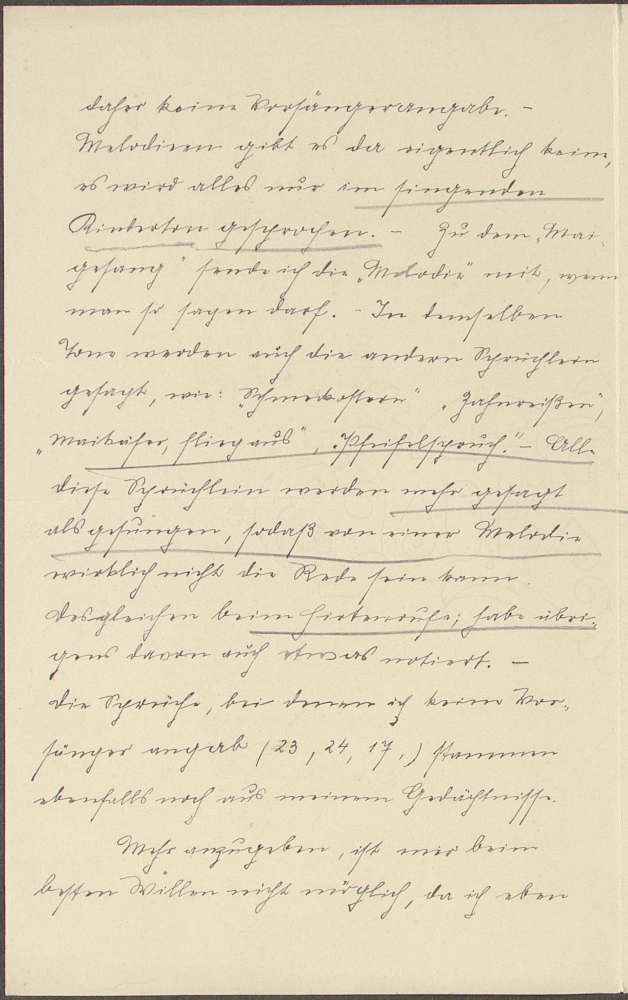 daher keine Vorsängerangabe. –
Melodieen gibt es da eigentlich keine,
es wird alles nur im singenden
Kinderton gesprochen. – Zu dem „Mai-
gesang" sende ich die „Melodie" mit, wenn
man so sagen darf. – In demselben
Tone werden auch die andern Sprüchlein
gesagt, wie: „Schmeckostern", „Zahnreißen",
„Maikäfer, flieg aus", „Pfeifelspruch." – Alle
diese Sprüchlein werden mehr gesagt
als gesungen, sodaß von einer Melodie
wirklich nicht die Rede sein kann.
Desgleichen beim Hirtenrufe; habe übri-
gens davon auch etwas notiert. –
Die Sprüche, bei denen ich keine Vor-
sänger angab (23, 24, 17,) stammen
ebenfalls noch aus meinem Gedächtnisse.
Mehr anzugeben, ist mir beim
besten Willen nicht möglich, da ich eben